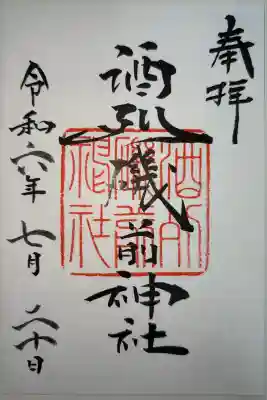 奉拝
酒列磯前神社
令和六年七月二十日
酒列
磯前
神社